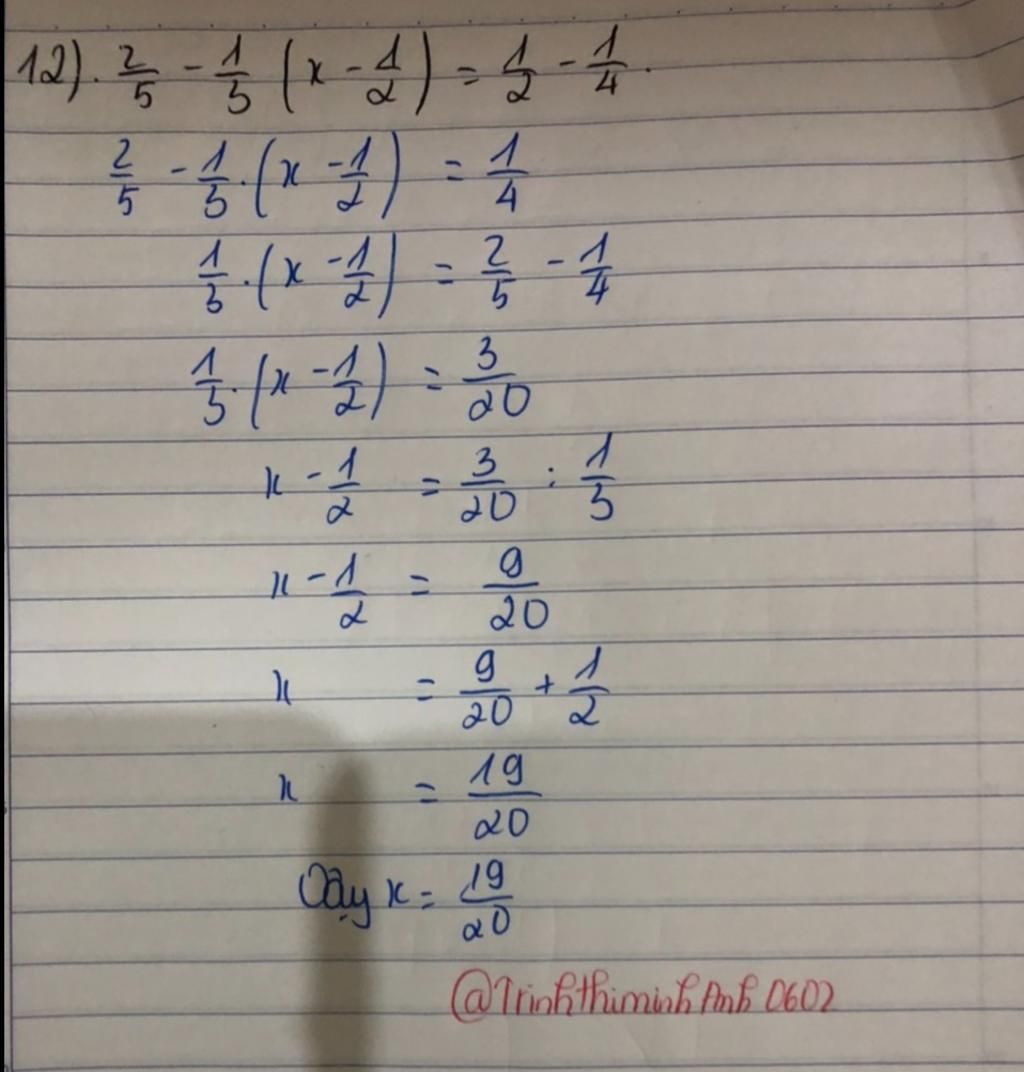 12). 2/5 - 1/3 (x - 1/2) = 1/2 - 1/4.
2/5 - 1/3.(x - 1/2) = 1/4
1/3.(x - 1/2) = 2/5 - 1/4
1/3.(x - 1/2) = 3/20
x - 1/2 = 3/20 : 1/3
x - 1/2 = 9/20
x = 9/20 + 1/2
x = 19/20
Vậy x = 19/20
@TrinhthiminhAnh0602